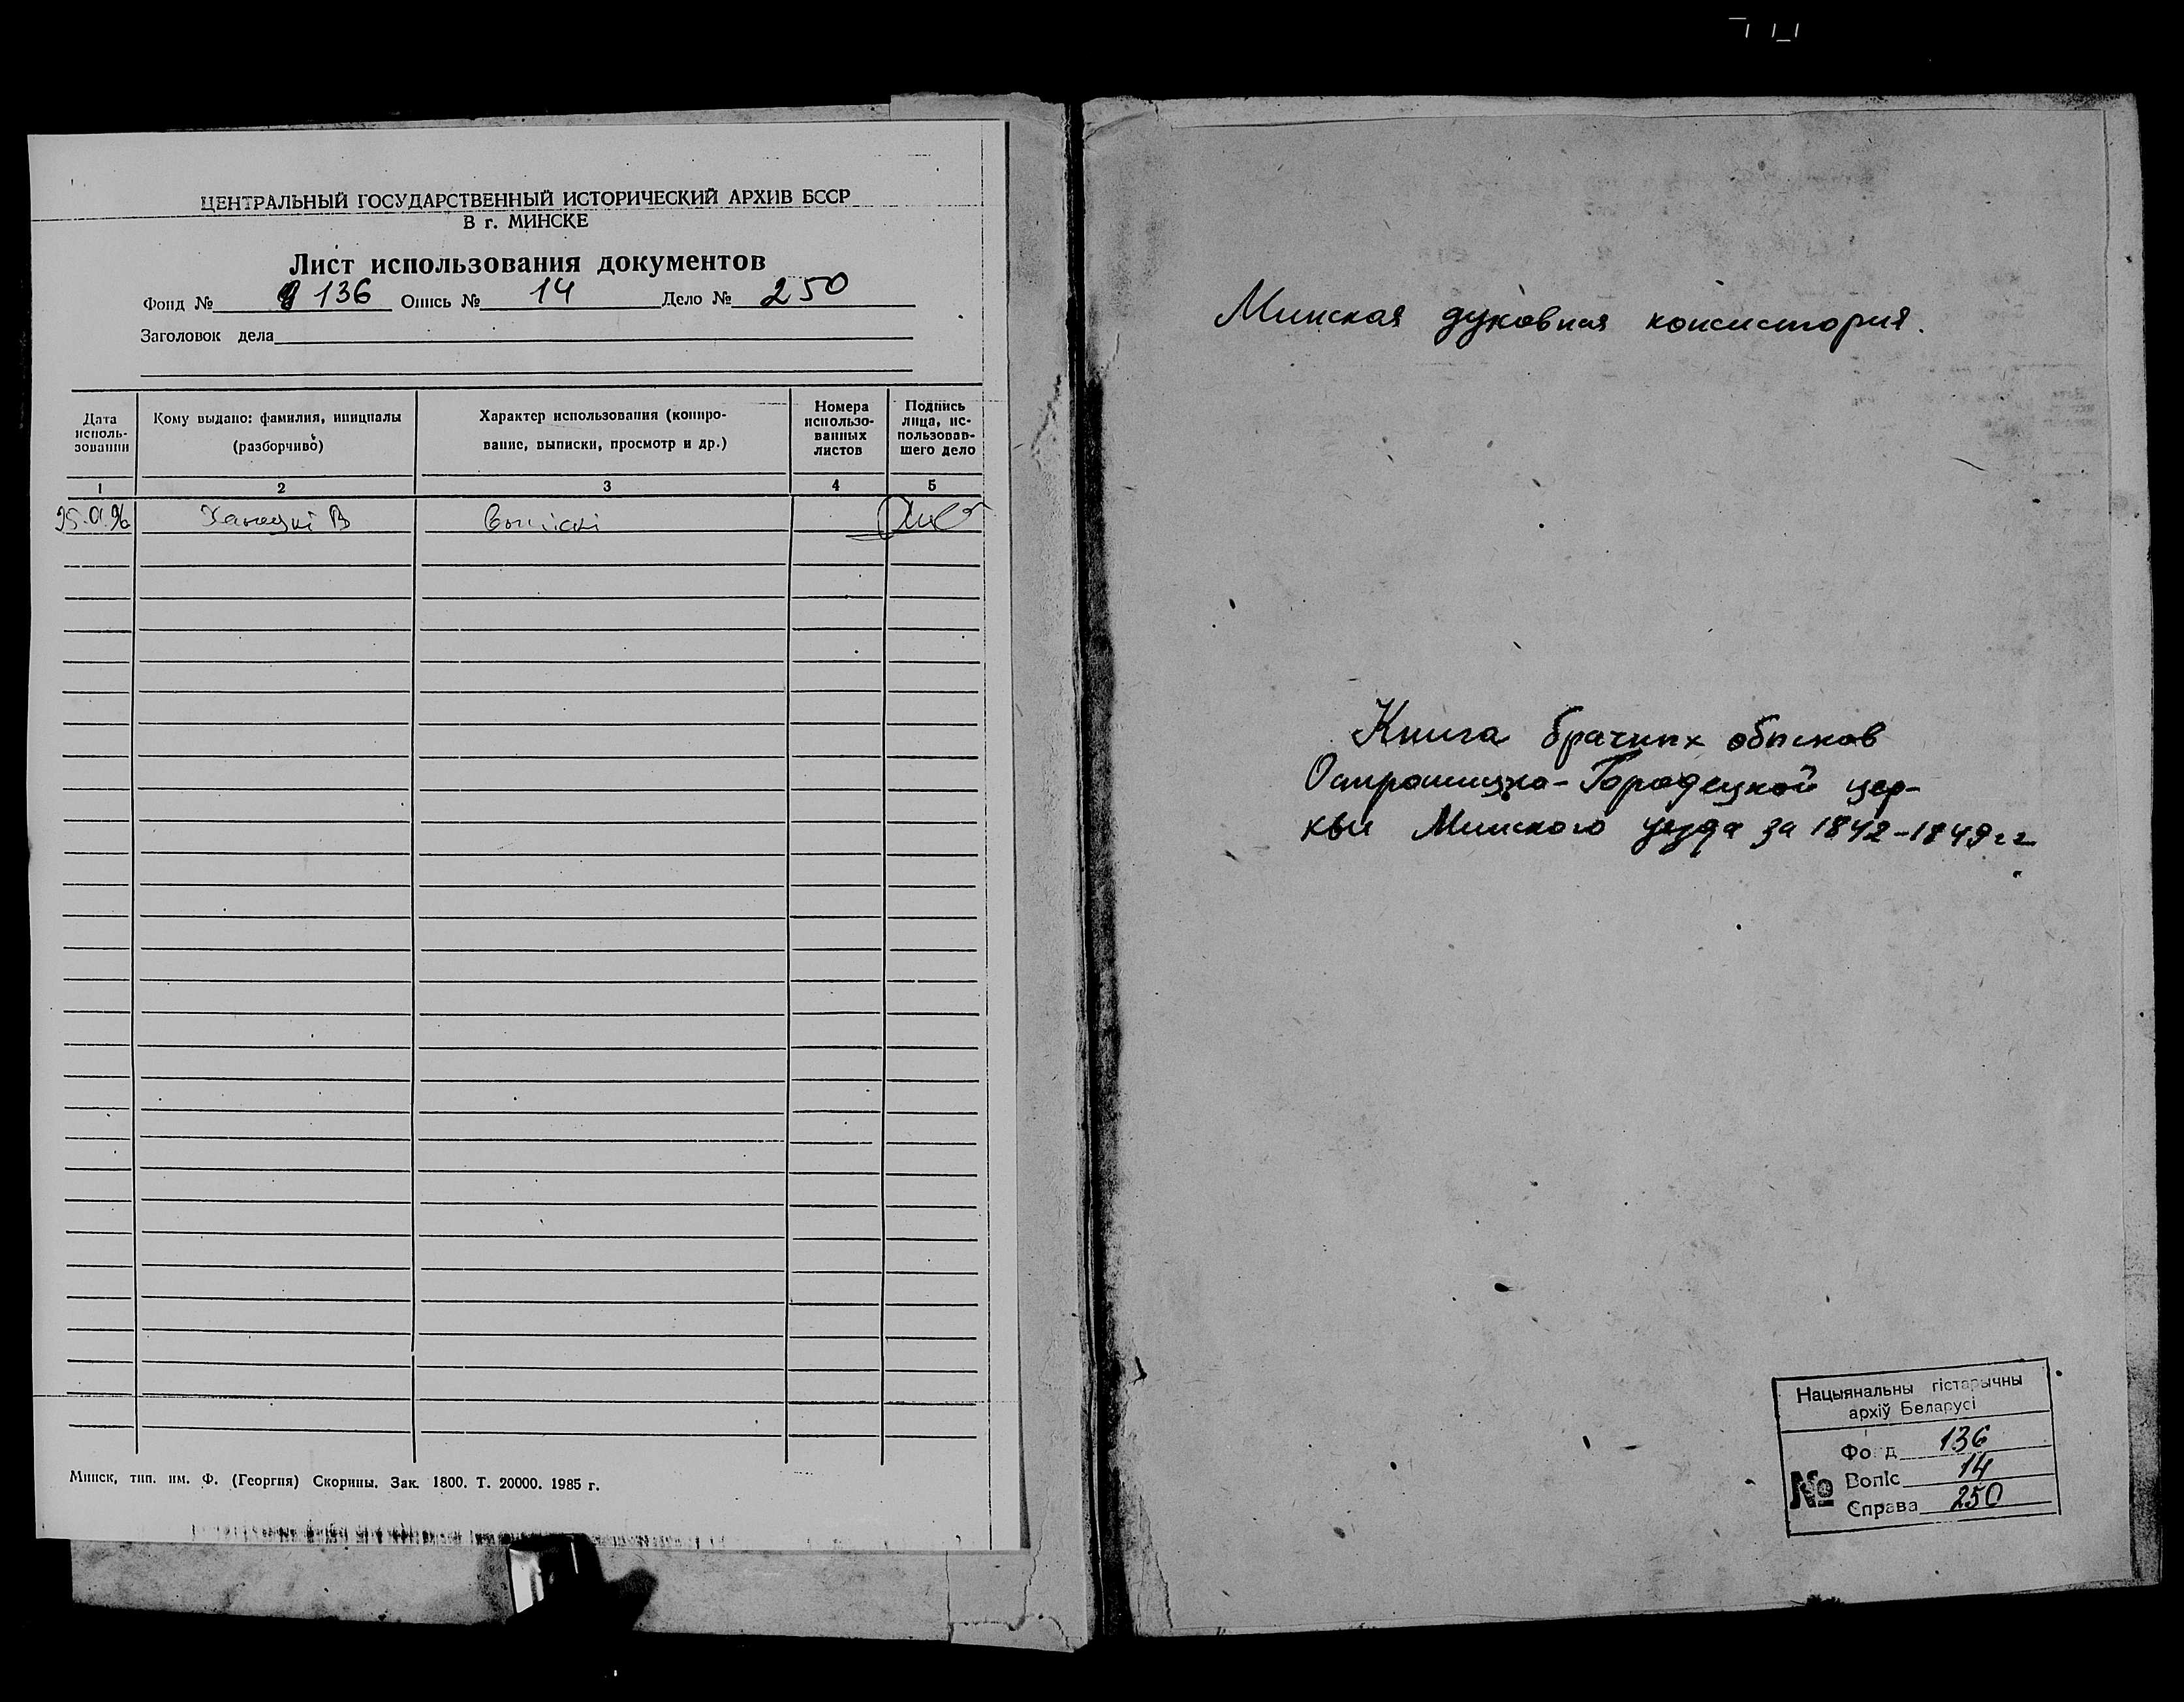 ЦЕНТРАЛЬНЫЙ ГОСУДАРСТВЕННЫЙ ИСТОРИЧЕСКИЙ АРХИВ БССР
В г. МИНСКЕ
Лист использования документов
Фонд № 136 Опись № 14 Дело № 250
Заголовок дела
Дата исполь-зования
Кому выдано: фамилия, инициалы (разборчиво)
Характер использования (копиро-вание, выписки, просмотр и др.)
Номера использо-ванных листов
Подпись лица, ис-пользовав-шего дело
1 2 3 4 5
Минск, тип. им. Ф. (Георгия) Скорины. Зак. 1800. Т. 20000. 1985 г.
Минская духовная консистория.
Книга брачных обысков
Острошицко-Городецкой цер-
кви Минского уезда за 1842-1849 гг
Нацыянальны гістарычны
архіў Беларусі
Фонд 136
№ Вопіс 14
Справа 250